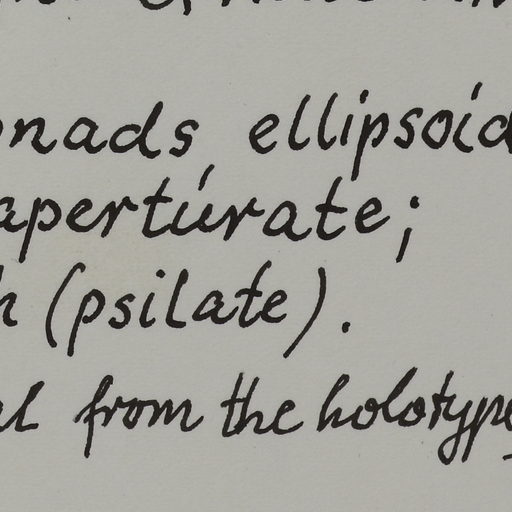 onads ellipsoid
apertúrate;
h (psilate).
al from the holotype